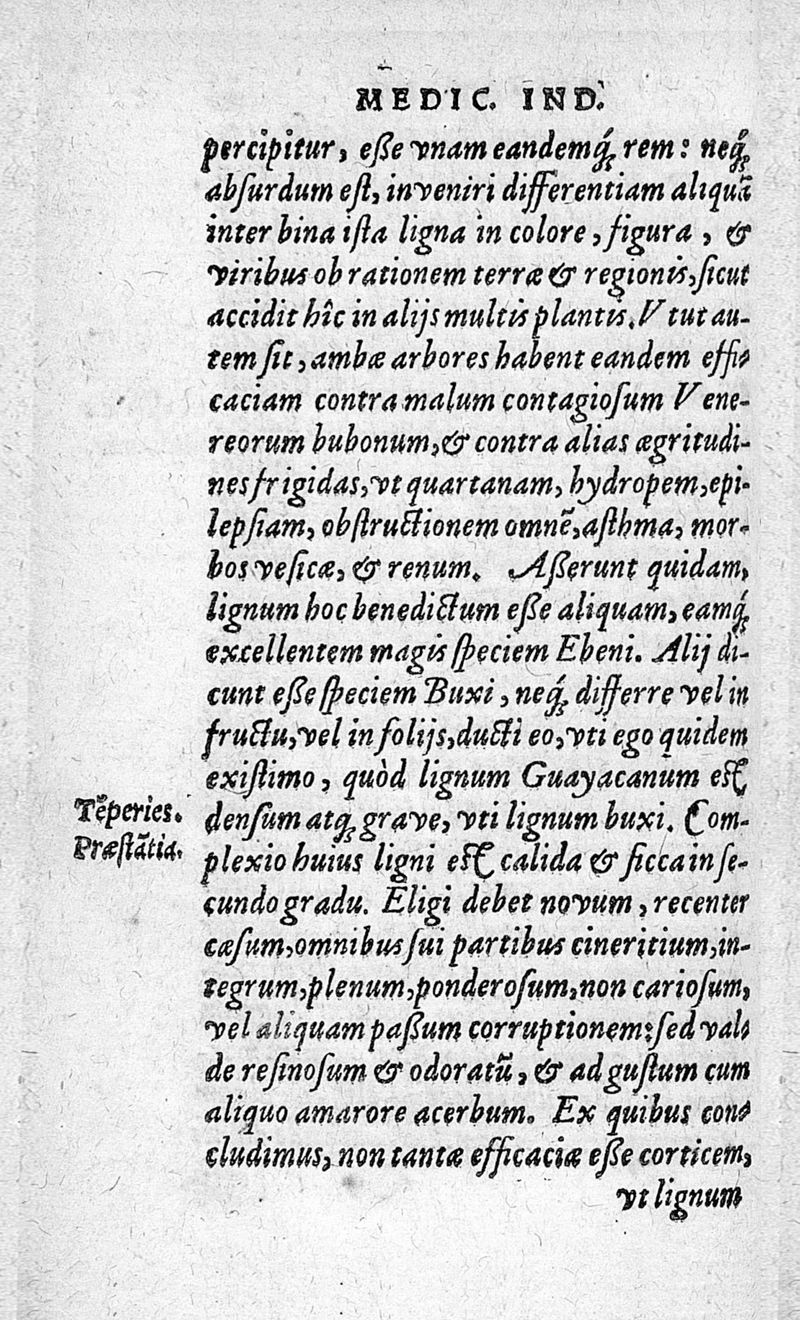 MEDIC. IND.
percipitur, eſſe vnam eandemq́; rem: neq́;
abſurdum eſt, inveniri differentiam aliquā
inter bina iſta ligna in colore, figura, &
viribus ob rationem terræ & regionis, ſicut
accidit hîc in alijs multis plantis. Vtut au-
tem ſit, ambæ arbores habent eandem effi-
caciam contra malum contagioſum Vene-
reorum bubonum, & contra alias ægritudi-
nes frigidas, vt quartanam, hydropem, epi-
lepſiam, obſtructionem omnē, aſthma, mor-
bos veſicæ, & renum. Aſſerunt quidam,
lignum hoc benedictum eſſe aliquam, eamq́;
excellentem magis ſpeciem Ebeni. Alij di-
cunt eſſe ſpeciem Buxi, neq́; differre vel in
fructu, vel in folijs, ducti eo, vti ego quidem
exiſtimo, quòd lignum Guayacanum eſt
Tēperies. denſum atq́; grave, vti lignum buxi. Com-
Præſtātia. plexio huius ligni eſt calida & ſicca in ſe-
cundo gradu. Eligi debet novum, recenter
cæſum, omnibus ſui partibus cineritium, in-
tegrum, plenum, ponderoſum, non carioſum,
vel aliquam paſſum corruptionem: ſed val-
de reſinoſum & odoratū, & ad guſtum cum
aliquo amarore acerbum. Ex quibus con-
cludimus, non tantæ efficaciæ eſſe corticem,
vt lignum